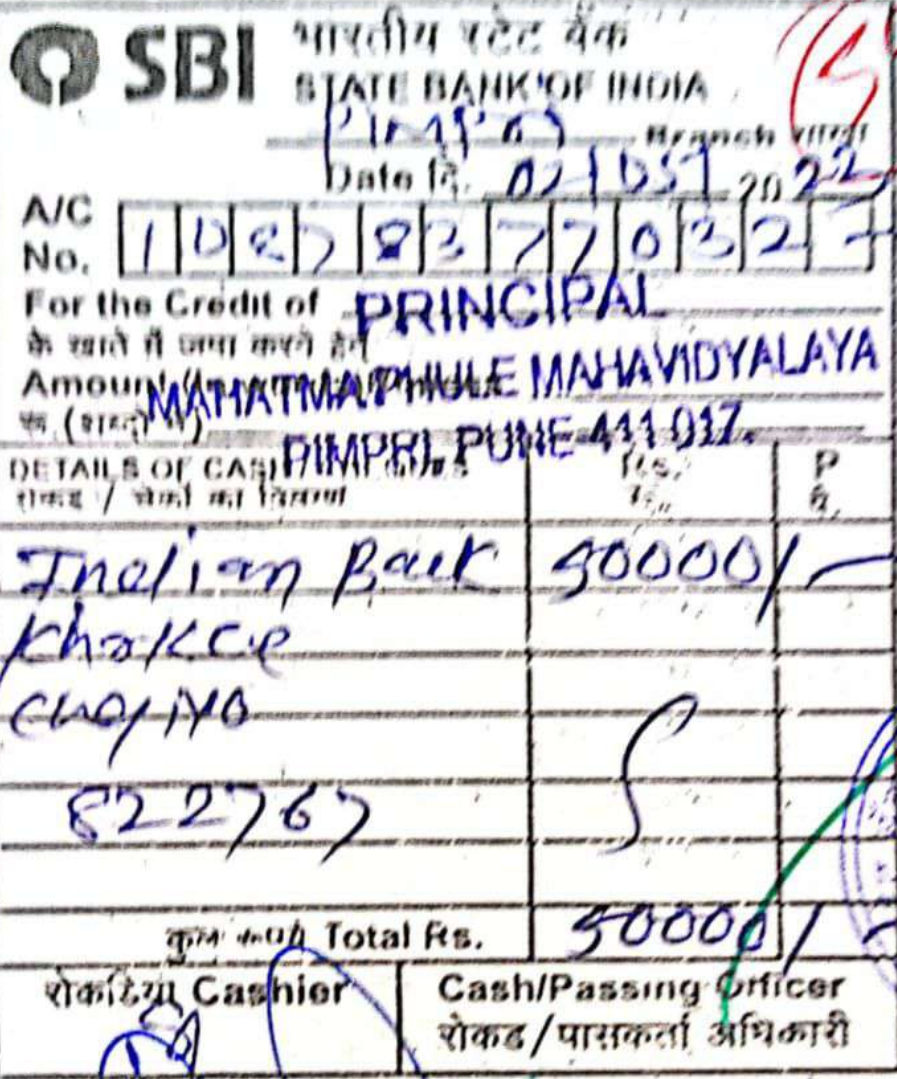 SBI भारतीय स्टेट बैंक
STATE BANK OF INDIA
Branch शाखा
Date दि. 2022
A/C
No. 1 0 8 7 8 3 7 7 0 3 2
For the Credit of PRINCIPAL
के खाते में जमा करने हेतु
Amount MAHATMA PHULE MAHAVIDYALAYA
रू (शब्दों में)
PIMPRI, PUNE-411 017.
DETAILS OF CASH Rs. P
रोकड / चेकों का विवरण रु. पै.
Indian Bank 50000/-
822767
कुल रुपये Total Rs. 50000/-
रोकडिया Cashier Cash/Passing Officer
रोकड/पासकर्ता अधिकारी